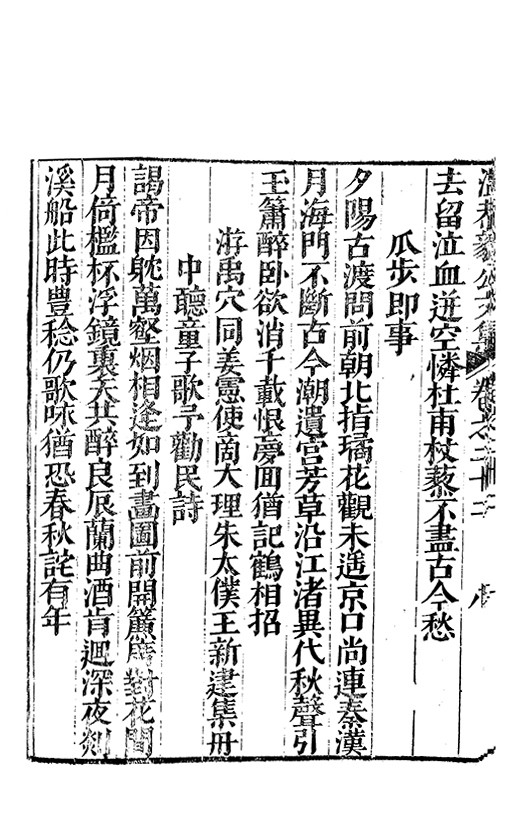 公文集 卷之二十二
去留泣血逬空憐杜甫杖藜不盡古今愁
瓜步即事
夕陽古渡問前朝北指璚花觀未遥京口尚連秦漢
月海門不斷古今潮遺宫芳草沿江渚異代秋聲引
玉簫醉卧欲消千載恨夢囬猶記鶴相招
游禹穴同姜憲使啇大理朱太僕王新建集舟
中聽童子歌予勸民詩
謁帝因躭萬壑烟相逢如到畫圖前開簾席對花間
月倚檻杯浮鏡裏天共醉良辰蘭曲酒肯迴深夜剡
溪船此時豊稔仍歌咏猶恐春秋詫有年